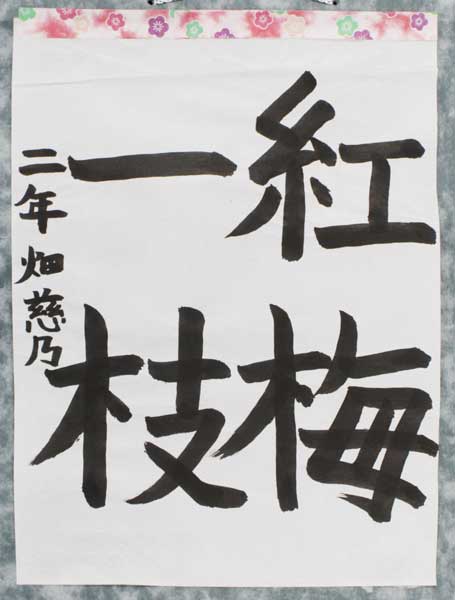 紅梅
一枝
二年畑慈乃